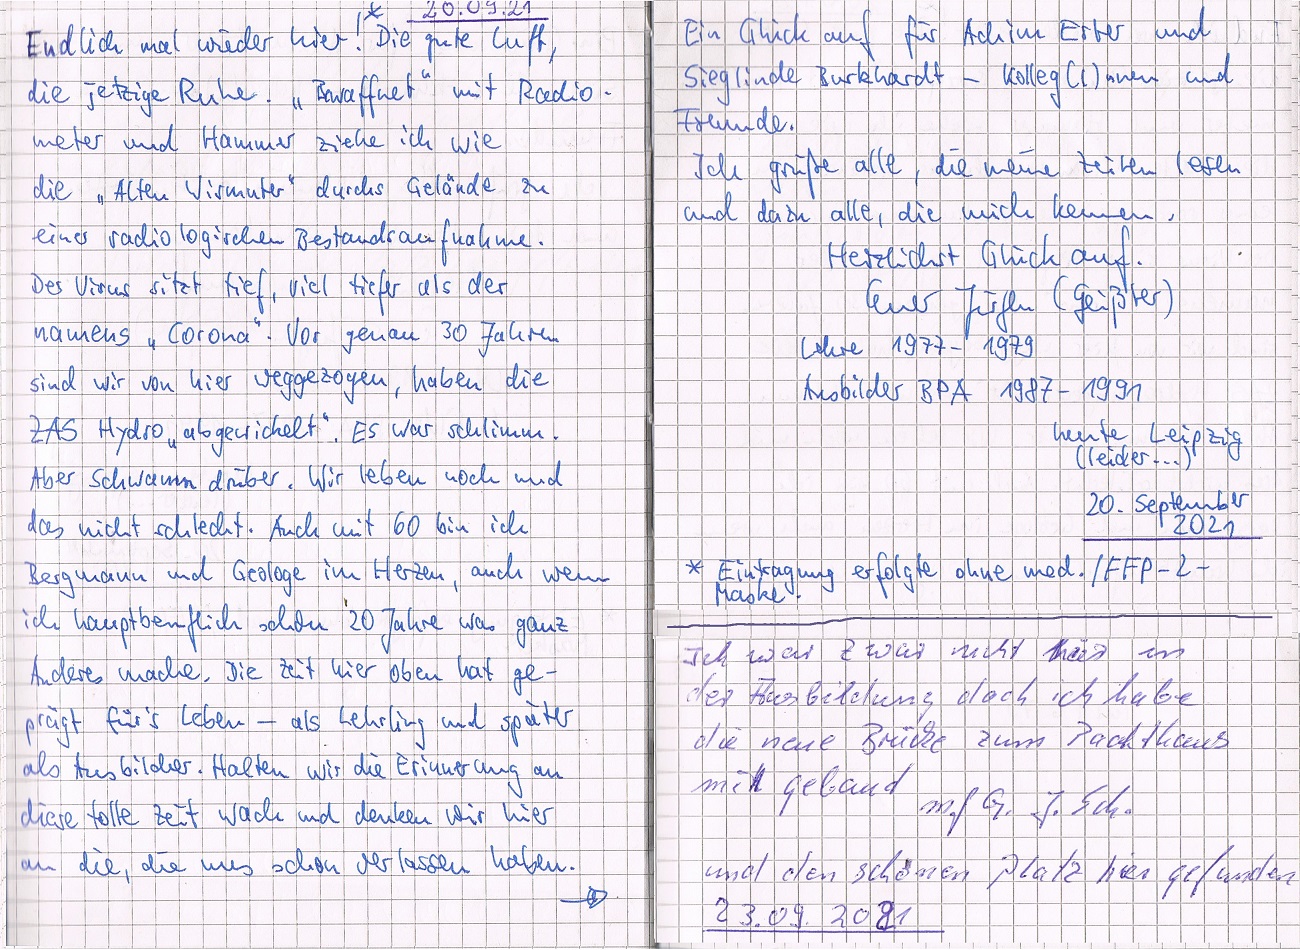 * 20.09.21
Endlich mal wieder hier! Die gute Luft,
die jetzige Ruhe. „Bewaffnet“ mit Radio-
meter und Hammer ziehe ich wie
die „Alten Wismuter“ durchs Gelände zu
einer radiologischen Bestandsaufnahme.
Der Virus sitzt tief, viel tiefer als der
namens „Corona“. Vor genau 30 Jahren
sind wir von hier weggezogen, haben die
ZAS Hydro „abgewickelt“. Es war schlimm.
Aber Schwamm drüber. Wir leben noch und
das nicht schlecht. Auch mit 60 bin ich
Bergmann und Geologe im Herzen, auch wenn
ich hauptberuflich schon 20 Jahre was ganz
Anderes mache. Die Zeit hier oben hat ge-
prägt für's Leben – als Lehrling und später
als Ausbilder. Halten wir die Erinnerung an
diese tolle Zeit wach und denken wir hier
an die, die uns schon verlassen haben.
→
Ein Glück auf für Achim Erber und
Sieglinde Burkhardt – Kolleg(I)nnen und
Freunde.
Ich grüße alle, die meine Zeilen lesen
und dazu alle, die mich kennen.
Herzlichst Glück auf.
Euer Jürgen (Geißler)
Lehre 1977 - 1979
Ausbilder BPA 1987 - 1991
heute Leipzig
(leider...)
20. September
2021
* Eintragung erfolgte ohne med. / FFP-2-
Maske.
Ich war zwar nicht hier in
der Ausbildung doch ich habe
die neue Brücke zum Pachthaus
mit gebaud
mf G. J. Sch.
und den schönen Platz hier gefunden
23.09.2021